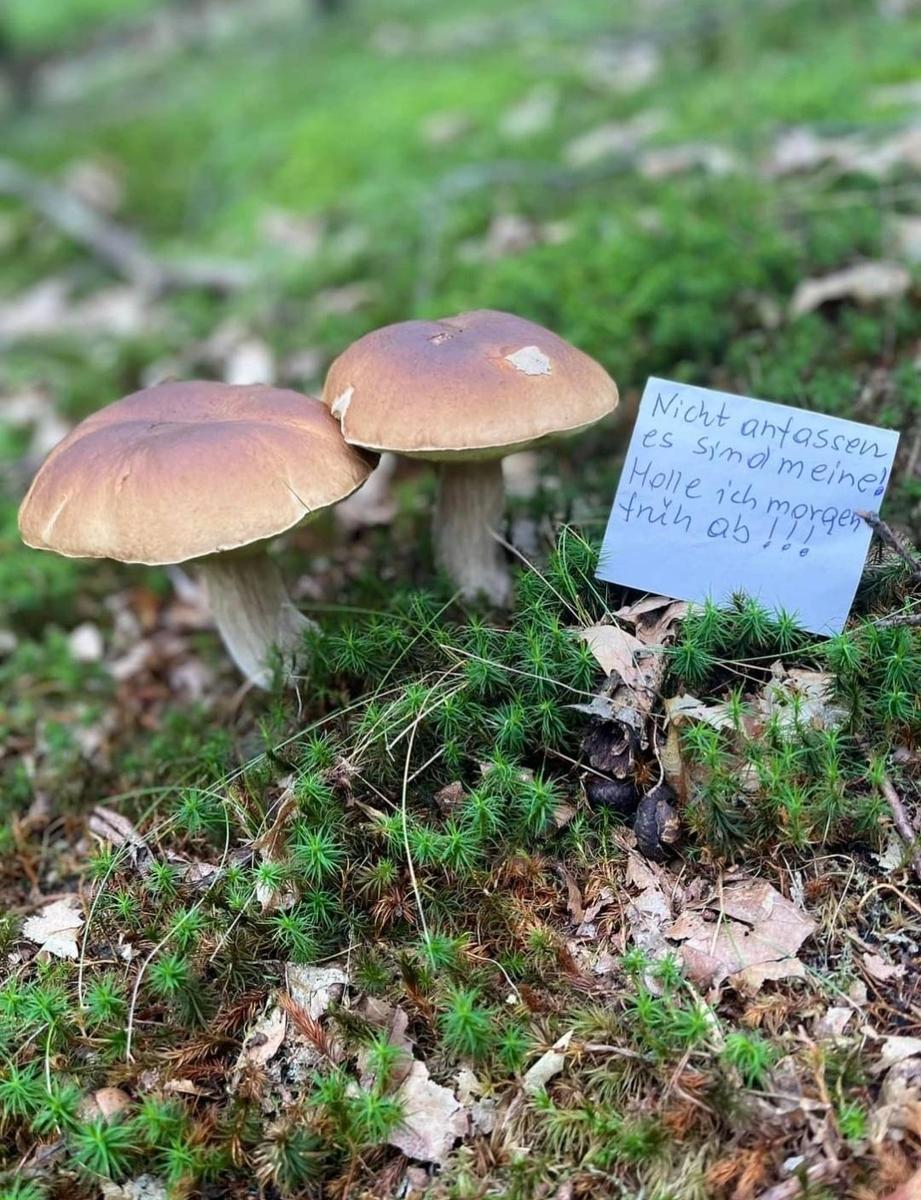 Nicht anfassen
es sind meine!
Holle ich morgen
früh ab!!!